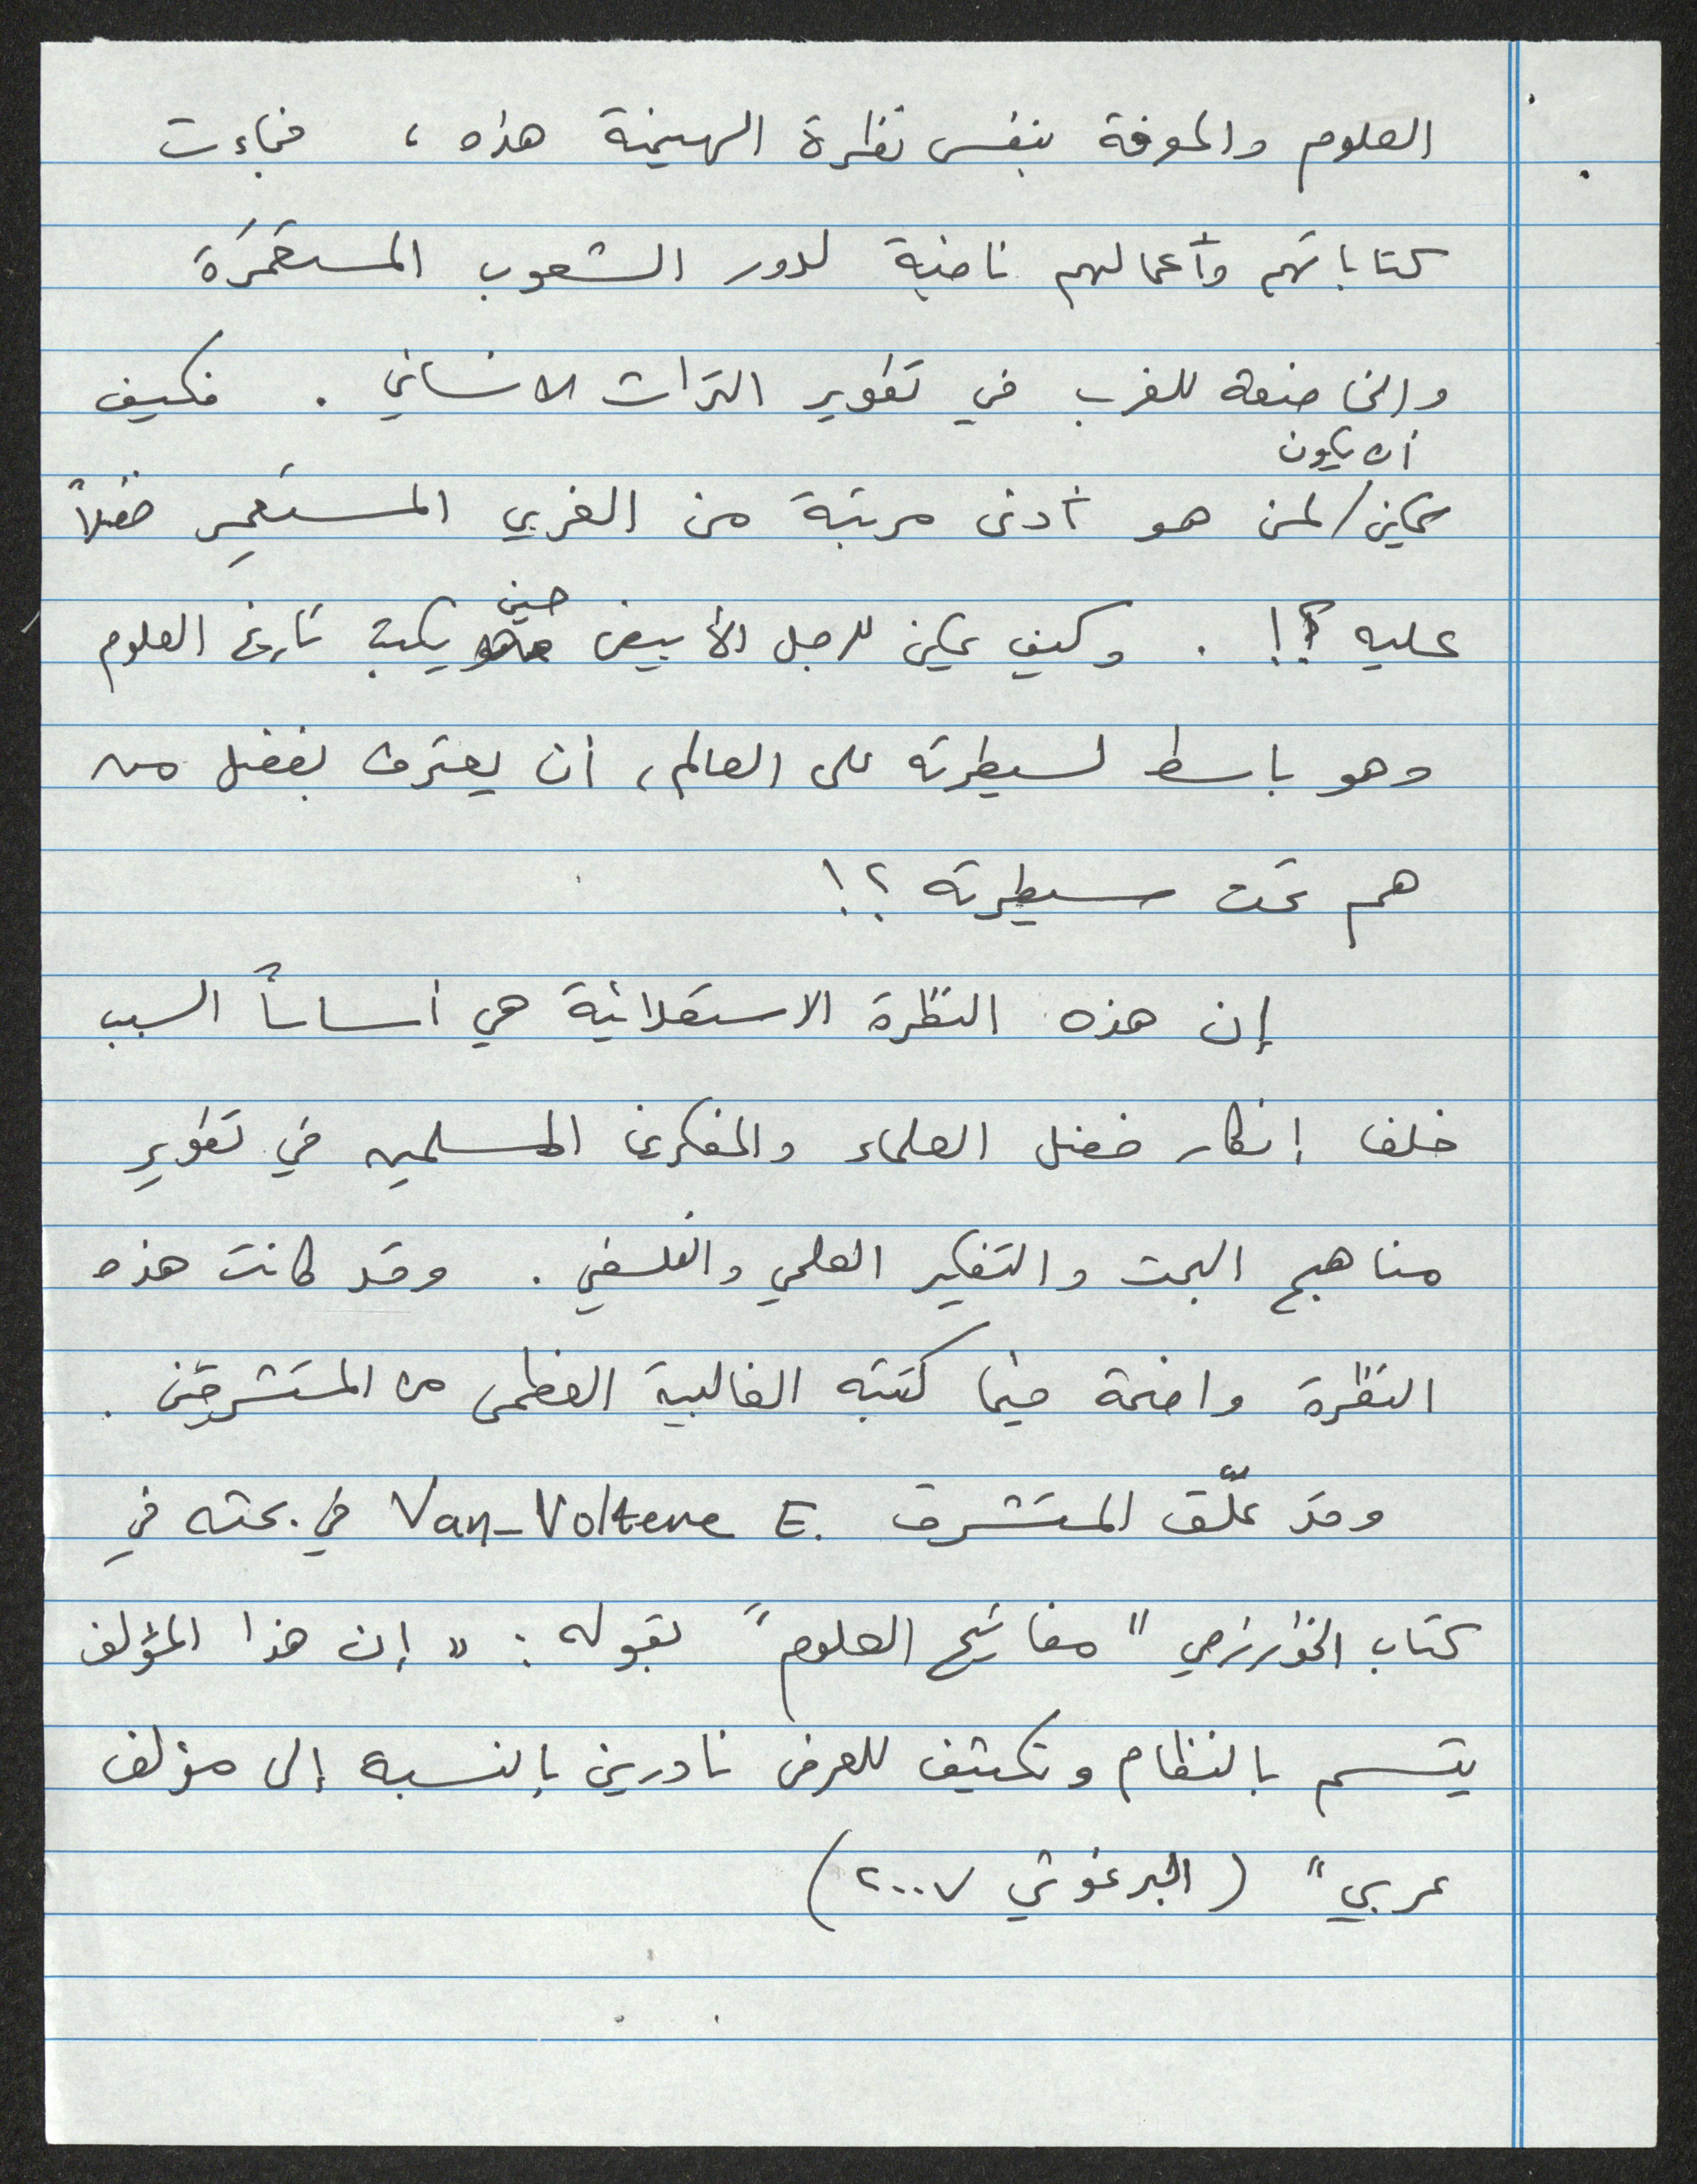 العلوم والمعرفة بنفس نظرة الهيمنة هذه ، فجاءت
كتاباتهم وأعمالهم نافية لدور الشعوب المستعمَرة
والخاضعة للغرب في تطوير التراث الانساني . فكيف
أن يكون
يمكن / لمن هو أدنى مرتبة من الغربي المستعمِر فضلاً
عليه ؟! . وكيف يمكن للرجل الأبيض حين يكتب تاريخ العلوم
وهو باسط لسيطرته على العالم ، أن يعترف بفضل من
هم تحت سيطرته ؟!
إن هذه النظرة الاستعلائية هي أساساً السبب
خلف إنكار فضل العلماء والمفكرين المسلمين في تطوير
مناهج البحث والتفكير العلمي والفلسفي . وقد كانت هذه
النظرة واضحة فيما كتبته الغالبية العظمى من المستشرقين .
وقد علّق المستشرق Van-Voltene E. في بحثه في
كتاب الخوارزمي " مفاتيح العلوم " بقوله : " إن هذا المؤلف
يتسم بالنظام وتكثيف للعرض نادرين بالنسبة إلى مؤلف
عربي " ( البرغوثي ٢٠٠٧ )